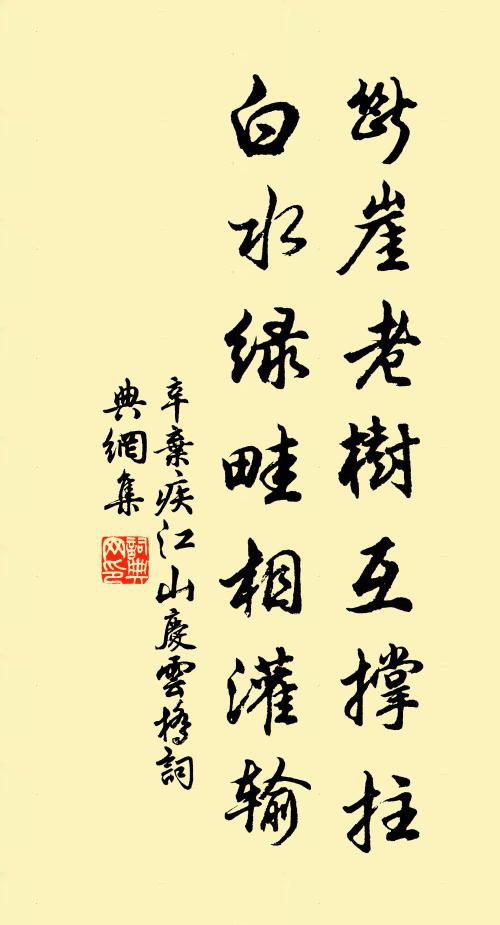 斷崖老樹互撑拄
白水緑畦相灌輸
辛棄疾江山慶雲橋詞
典網集
詞典
网印